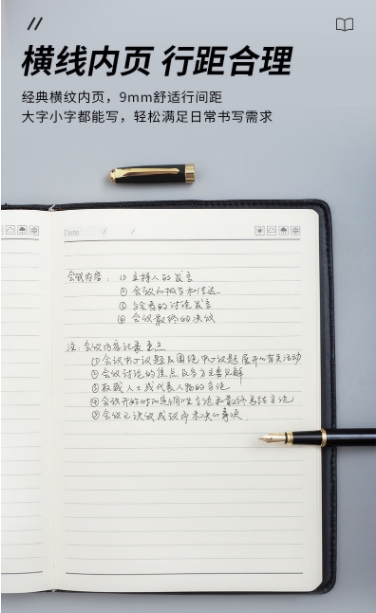 横线内页 行距合理
经典横纹内页，9mm舒适行间距
大字小字都能写，轻松满足日常书写需求
Date
会议内容：① 主持人的发言
② 会议的报告和传达
③ 与会者的讨论发言
④ 会议最终的决议
注：会议内容记录重点
① 会议中心议题及围绕中心议题展开的有关活动
② 会议讨论的焦点及各方主要见解
③ 权威人士或代表人物的言论
④ 会议开始时的定调性言论和
⑤ 会议已决议或